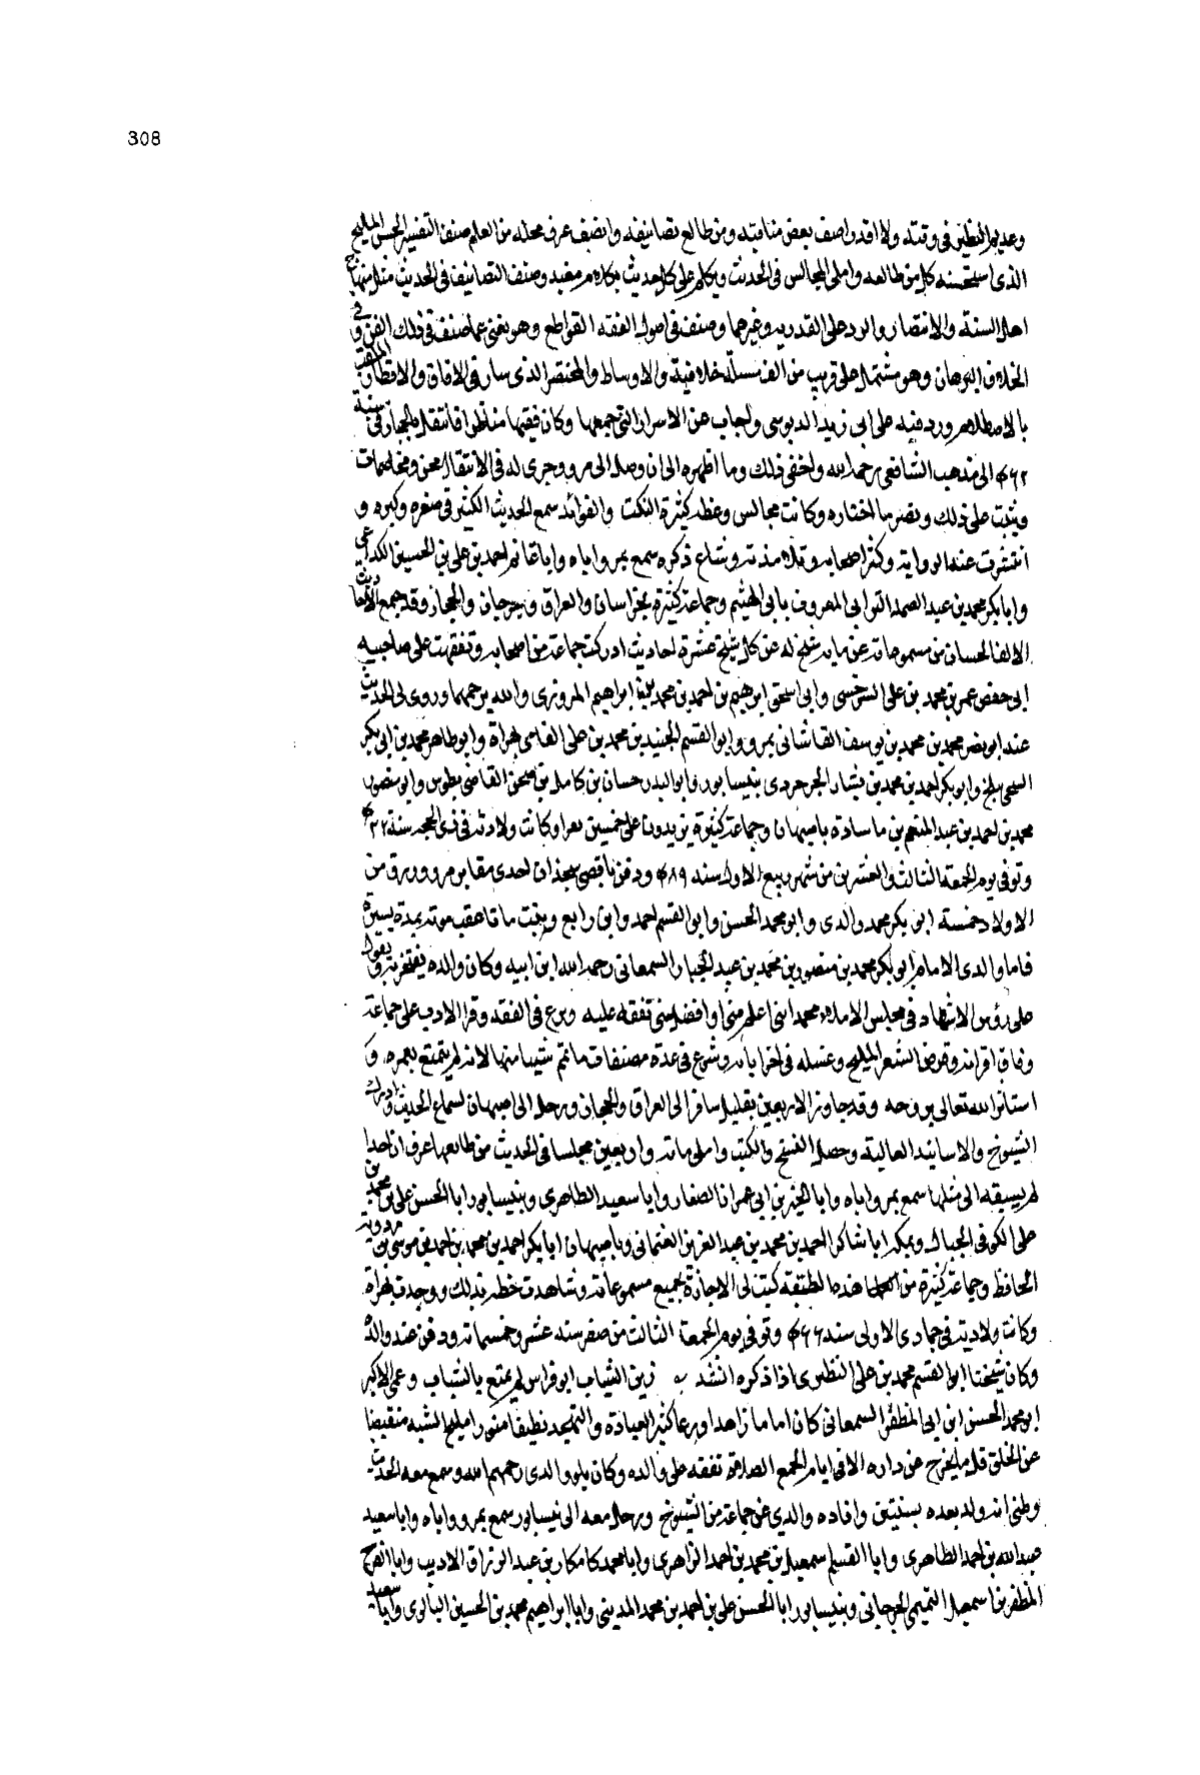 308
وعديم النظير فى وقته ولا اقدر اصف بعض مناقبه ومن طالع تصانيفه وانصف عرف محله من العلم صنف التفسير الحسن المليح
الذى استحسنه كل من طالعه واملى المجالس فى الحديث وتكلم على كل حديث بكلام مفيد وصنف التصانيف فى الحديث مثل منهاج
اهل السنة والانتصار والرد على القدريه وغيرها وصنف فى اصول الفقه القواطع وهو يغنى عما صنف فى ذلك الفن و فى
الخلاف البرهان وهو مشتمل على قريب من الف مسلة خلافية والاوساط والمختصر الذى سار فى الافاق والاقطار الملقب
بالاصطلام ورد فيه على ابى زيد الدبوسى واجاب عن الاسرار التى جمعها وكان فقيها مناظرا فانتقل بالحجاز فى سنة
۴۶۲ الى مذهب الشافعى رحمه الله واخفى ذلك وما اظهره الى ان وصل الى مرو وجرى له فى الانتقال محن ومخاصمات
وثبت على ذلك ونصر ما اختاره وكانت مجالس وعظه كثيرة النكت والفوائد سمع الحديث الكثير فى صغره وكبره و
انتشرت عنه الرواية وكثر اصحابه وتلامذته وشاع ذكره سمع بمرو اباه واباغانم احمد بن على بن الحسين الكراعى
وابابكر محمد بن عبد الصمد الترابى المعروف بابى الهيثم وجماعة كثيرة بخراسان والعراق وجرجان والحجاز وقد جمع الاحاديث
الالف الحسان من مسموعاته عن ماية شيخ له عن كل شيخ عشرة احاديث ادركت جماعة من اصحابه وتفقهت على صاحبيه
ابى حفص عمر بن محمد بن على السرخسى وابى اسحق ابرهيم بن احمد بن محمد بن ابراهيم المروزى والله يرحمهما وروى لى الحديث
عنه ابو نصر محمد بن محمد بن يوسف القاشانى بمرو وابو القسم الجنيد بن محمد بن على القاينى بهراة وابو طاهر محمد بن ابى بكر
السنجى ببلخ وابو بكر احمد بن محمد بن بشار الجرجردى بنيسابور وابو البدر حسان بن كامل بن صخر القاضى بطوس وابو منصور
محمد بن احمد بن عبد المنعم بن ماسادة باصبهان وجماعة كثيرة يزيدون على خمسين نفرا وكانت ولادته فى ذى الحجه سنة ۴۲۶
وتوفى يوم الجمعة الثالث والعشرين من شهر ربيع الاول سنه ۴۸۹ ودفن باقصى سجذان احدى مقابر مرو ورزق من
الاولاد خمسة ابو بكر محمد والدى وابو محمد الحسن وابو القسم احمد وابن رابع وبنت ماتا عقب موته بمدة يسيرة
فاما والدى الامام ابو بكر محمد بن منصور بن محمد بن عبد الجبار السمعانى رحمه الله ابن ابيه وكان والده يفتخر به و يقول
على رؤس الاشهاد فى مجلس الاملاء محمد ابنى اعلم منى وافضل منى تفقه عليه وبرع فى الفقه وقرا الادب على جماعة
وفاق اقرانه وقرض الشعر المليح وغسله فى اخر ايامه وشرع فى عدة مصنفات ما تم شييا منها لانه لم يتمتع بعمره و
استاثر الله تعالى بروحه وقد جاوز الاربعين بقليل سافر الى العراق والحجاز ورحل الى اصبهان لسماع الحديث وادرك
الشيوخ والاسانيد العالية وحصل النسخ والكتب واملى ماية واربعين مجلسا فى الحديث من طالعها عرف ان احدا
لم يسبقه الى مثلها سمع بمرو اباه وابا الخير بن ابى عمران الصفار وابا سعيد الطاهرى وبنيسابور ابا الحسن على بن محمد بن
على الكوفى الجبال وبمكة ابا شاكر احمد بن محمد بن عبد العزيز العثمانى وباصبهان ابا بكر احمد بن محمد بن احمد بن موسى بن مردوية
الحافظ وجماعة كثيرة من هذه الطبقة كتب لى الاجازة بجميع مسموعاته وشاهدت خطه بذلك ووجدت بهراة
وكانت ولادته فى جمادى الاولى سنه ۴۶۶ وتوفى يوم الجمعة الثالث من صفر سنه عشر وخمسماية ودفن عند والده
وكان شيخنا ابو القسم محمد بن على النظرى اذا ذكره انشد زين الشباب ابو فراس لم يمتع بالشباب وعمى الاكبر
ابو محمد الحسن ابن ابى المظفر السمعانى كان اماما زاهدا ورعا كثير العبادة والتهجد نظيفا منورا مليح الشيبه منقبضا
عن الخلق قل ما يخرج عن داره الا فى ايام الجمع الصلاة تفقه على والده وكان يلو والدى رحمهم الله وسمع معه الحديث
وظنى انه ولد بعده بسنتين وافاده والدى عن جماعة من الشيوخ ورحل معه الى نيسابور سمع بمرو واباه وابا سعيد
عبد الله بن احمد الطاهرى وابا القسم اسمعيل بن محمد بن احمد الزاهرى وابا محمد كامكار بن عبد الرزاق الاديب وابا الفرج
المظفر بن اسمعيل التميمى الجرجانى وبنيسابور ابا الحسن على بن احمد بن محمد المدينى وابا ابراهيم محمد بن الحسين البالوى وابا سعيد